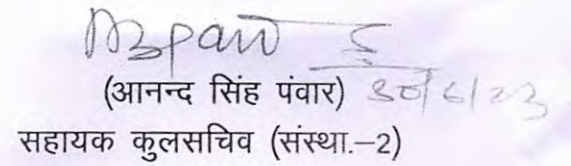 (आनन्द सिंह पंवार) 30/6/23
सहायक कुलसचिव (संस्था.–2)